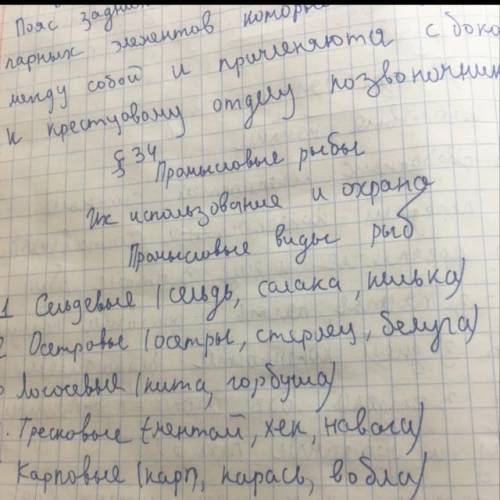 Пояс задних
парных элементов которые
между собой и причленяются с боко
к крестцовому отделу позвоночник
§ 34
Промысловые рыбы
Их использование и охрана
Промысловые виды рыб
1 Сельдевые (сельдь, салака, килька)
2 Осетровые (осетры, стерлец, белуга)
Лососевые (кита, горбуша)
Тресковые (ментай, хек, навага)
Карповые (карп, карась, вобла)